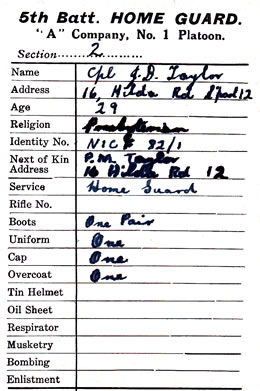 5th Batt. HOME GUARD.
"A" Company, No. 1 Platoon.
Section 2
Name Cpl J.D. Taylor
Address 16, Hilda Rd S'port 12
Age 29
Religion Presbyterian
Identity No. NIC F 82/1
Next of Kin P.M. Taylor
Address 16 Hilda Rd 12
Service Home Guard
Rifle No.
Boots One Pair
Uniform One
Cap One
Overcoat One
Tin Helmet
Oil Sheet
Respirator
Musketry
Bombing
Enlistment